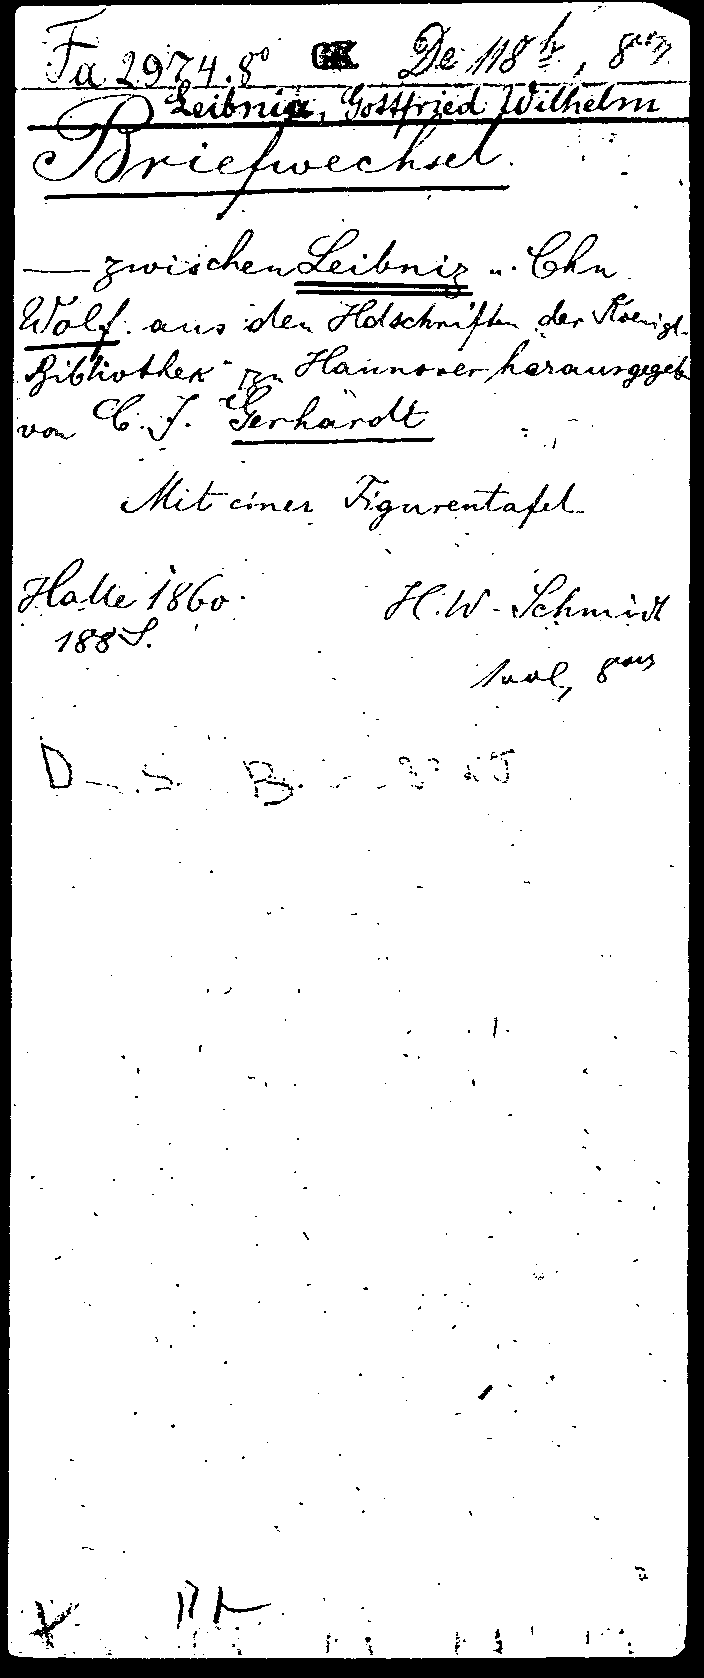 Fa 2974.8° GK De 118 b, 8
Leibniz, Gottfried Wilhelm
Briefwechsel.
— zwischen Leibniz u. Chn
Wolf. aus den Hdschriften der Koenigl.
Bibliothek zu Hannover herausgegeb
von C. J. Gerhardt
Mit einer Figurentafel
Halle 1860. H. W. Schmidt
188 S.
1 vol, 8